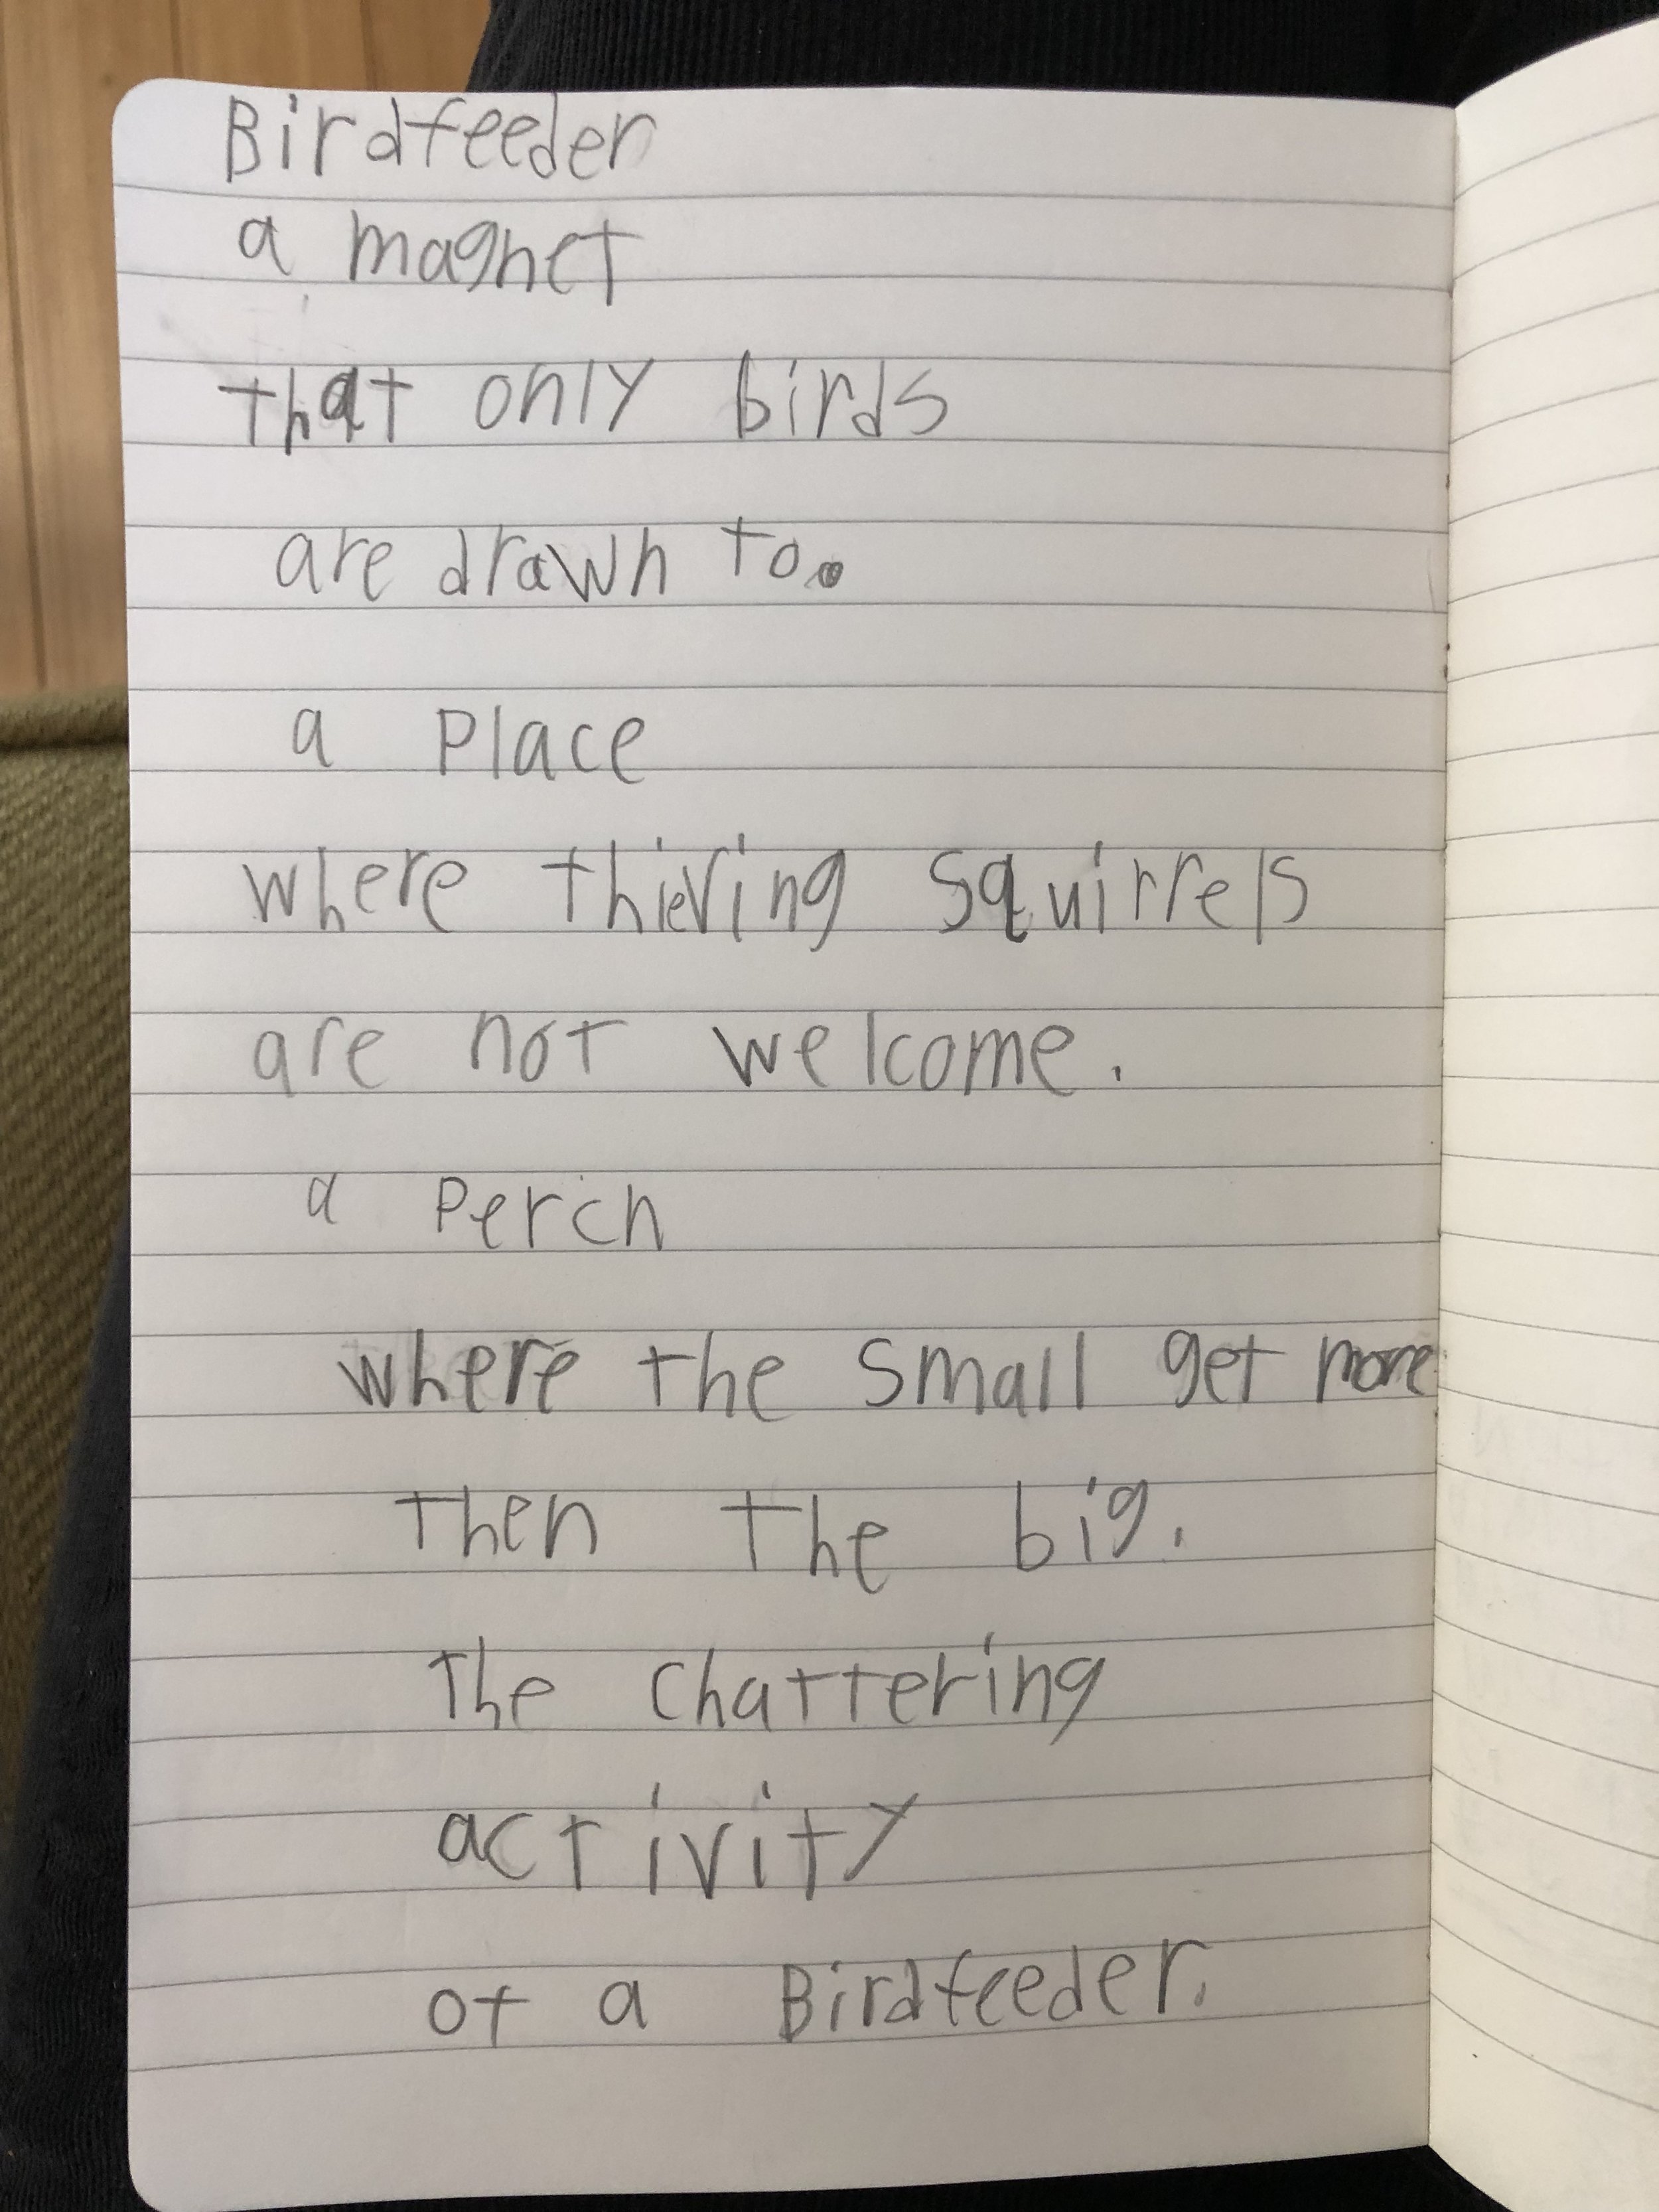 Birdfeeder
a magnet
that only birds
are drawn to.
a Place
where thieving squirrels
are not welcome.
a Perch
where the small get more
then the big.
The chattering
activity
of a Birdfeeder.